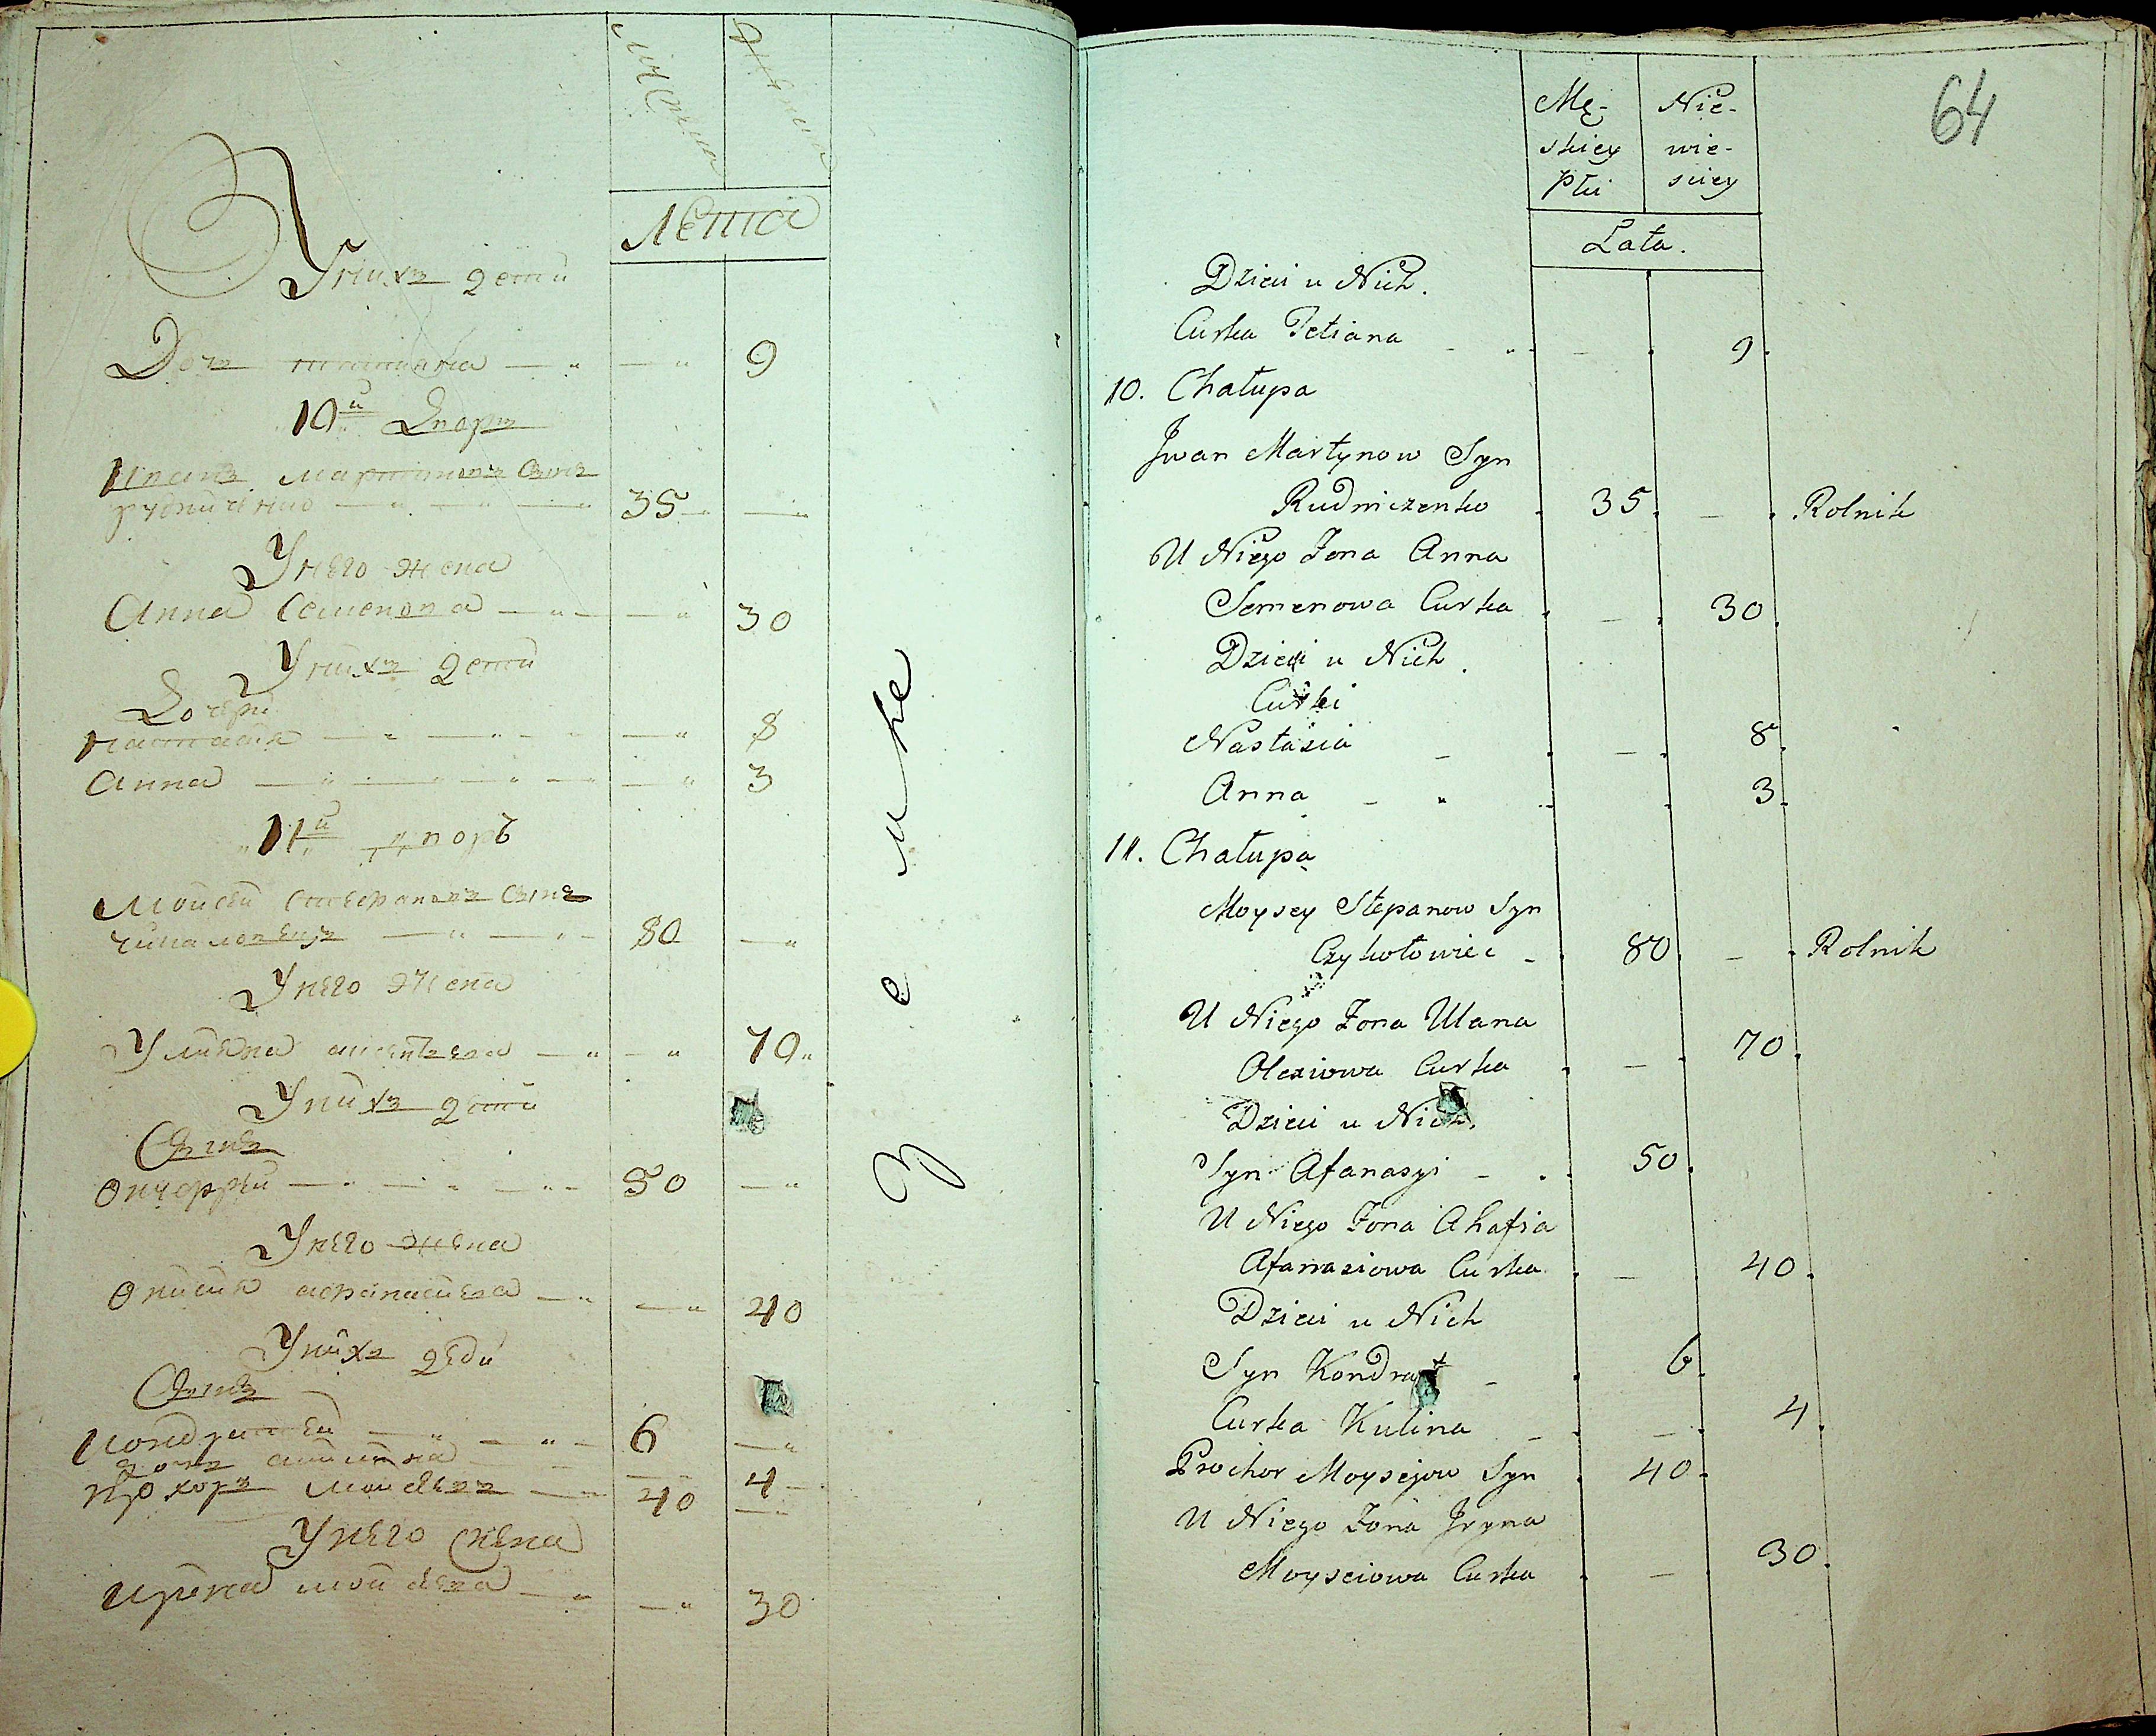 Лета
У нихъ дети
Дочь татиана — — 9
10й Дворъ
Иванъ мартиновъ Синъ
рудниченко — — — 35 —
У него жена
Анна Семенова — — 30
У нихъ дети
Дочери
настасия — — — — 8
Анна — — — — — 3
11й дворъ
Моисей Стефановъ Синъ
чикаловецъ — — 80 —
У него жена
Улияна алексѣева — — 70
У нихъ дети
Синъ
— — — 50 —
У него жена
афанасиева — — 40
У нихъ деди
Синъ
Кондратей — — — 6 —
дочь — 4
Прохоръ Моисѣевъ — 40 —
У него жена
Ирена Моисѣева — — 30
64
Mę- Nie-
skiey wie-
płci sciey
Lata.
Dzieci u Nich.
Curka Tetiana - - 9.
10. Chałupa
Jwan Martynow Syn
Rudniczenko . 35. — . Rolnik
U Niego Żona Anna
Semenowa Curka . — . 30.
Dzieci u Nich.
Curki
Nastazia - . — . 8.
Anna - " . 3.
11. Chałupa
Moysey Stepanow Syn
Czykołowiec - . 80. — . Rolnik
U Niego Żona Ulana
Olexiowa Curka . — . 70.
Dzieci u Nich.
Syn Afanasyi - . 50.
U Niego Żona Ahafia
Afanasiowa Curka . — 40.
Dzieci u Nich
Syn Kondrat - . 6.
Curka Kulina - — . 4.
Prochor Moysejow Syn . 40.
U Niego Żona Jryna
Moysciowa Curka . — 30.